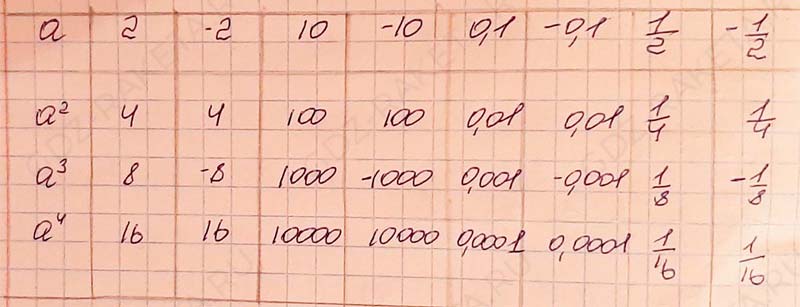 a 2 -2 10 -10 0,1 -0,1 1/2 -1/2
a² 4 4 100 100 0,01 0,01 1/4 1/4
a³ 8 -8 1000 -1000 0,001 -0,001 1/8 -1/8
a⁴ 16 16 10000 10000 0,0001 0,0001 1/16 1/16